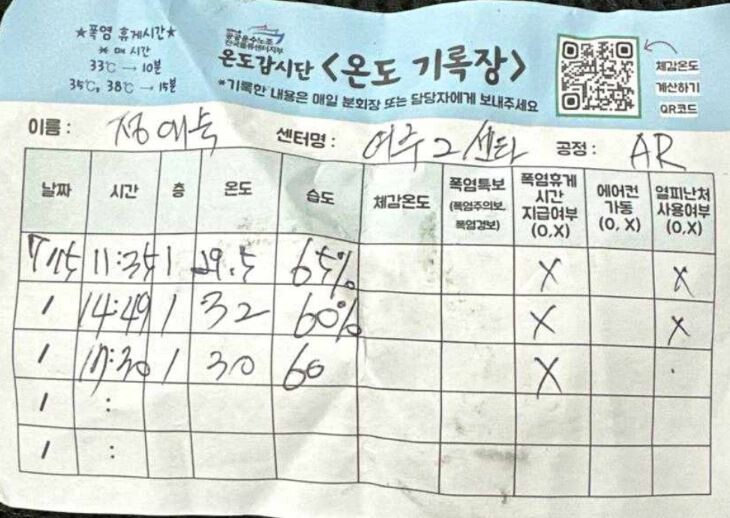 ★폭염 휴게시간★
※ 매 시간
33℃ → 10분
35℃, 38℃ → 15분
공공운수노조
전국물류센터지부
온도감시단 <온도 기록장>
*기록한 내용은 매일 분회장 또는 담당자에게 보내주세요
체감온도
계산하기
QR코드
이름 : 정 숙 센터명 : 여주 2 센타 공정 : AR
날짜 시간 층 온도 습도 체감온도 폭염특보 (폭염주의보, 폭염경보) 폭염휴게시간 지급여부 (O,X) 에어컨 가동 (O, X) 열피난처 사용여부 (O,X)
7/15 11:35 1 29.5 65% X X
/ 14:49 1 32 60% X X
/ 17:30 1 30 60 X
/ :
/ :